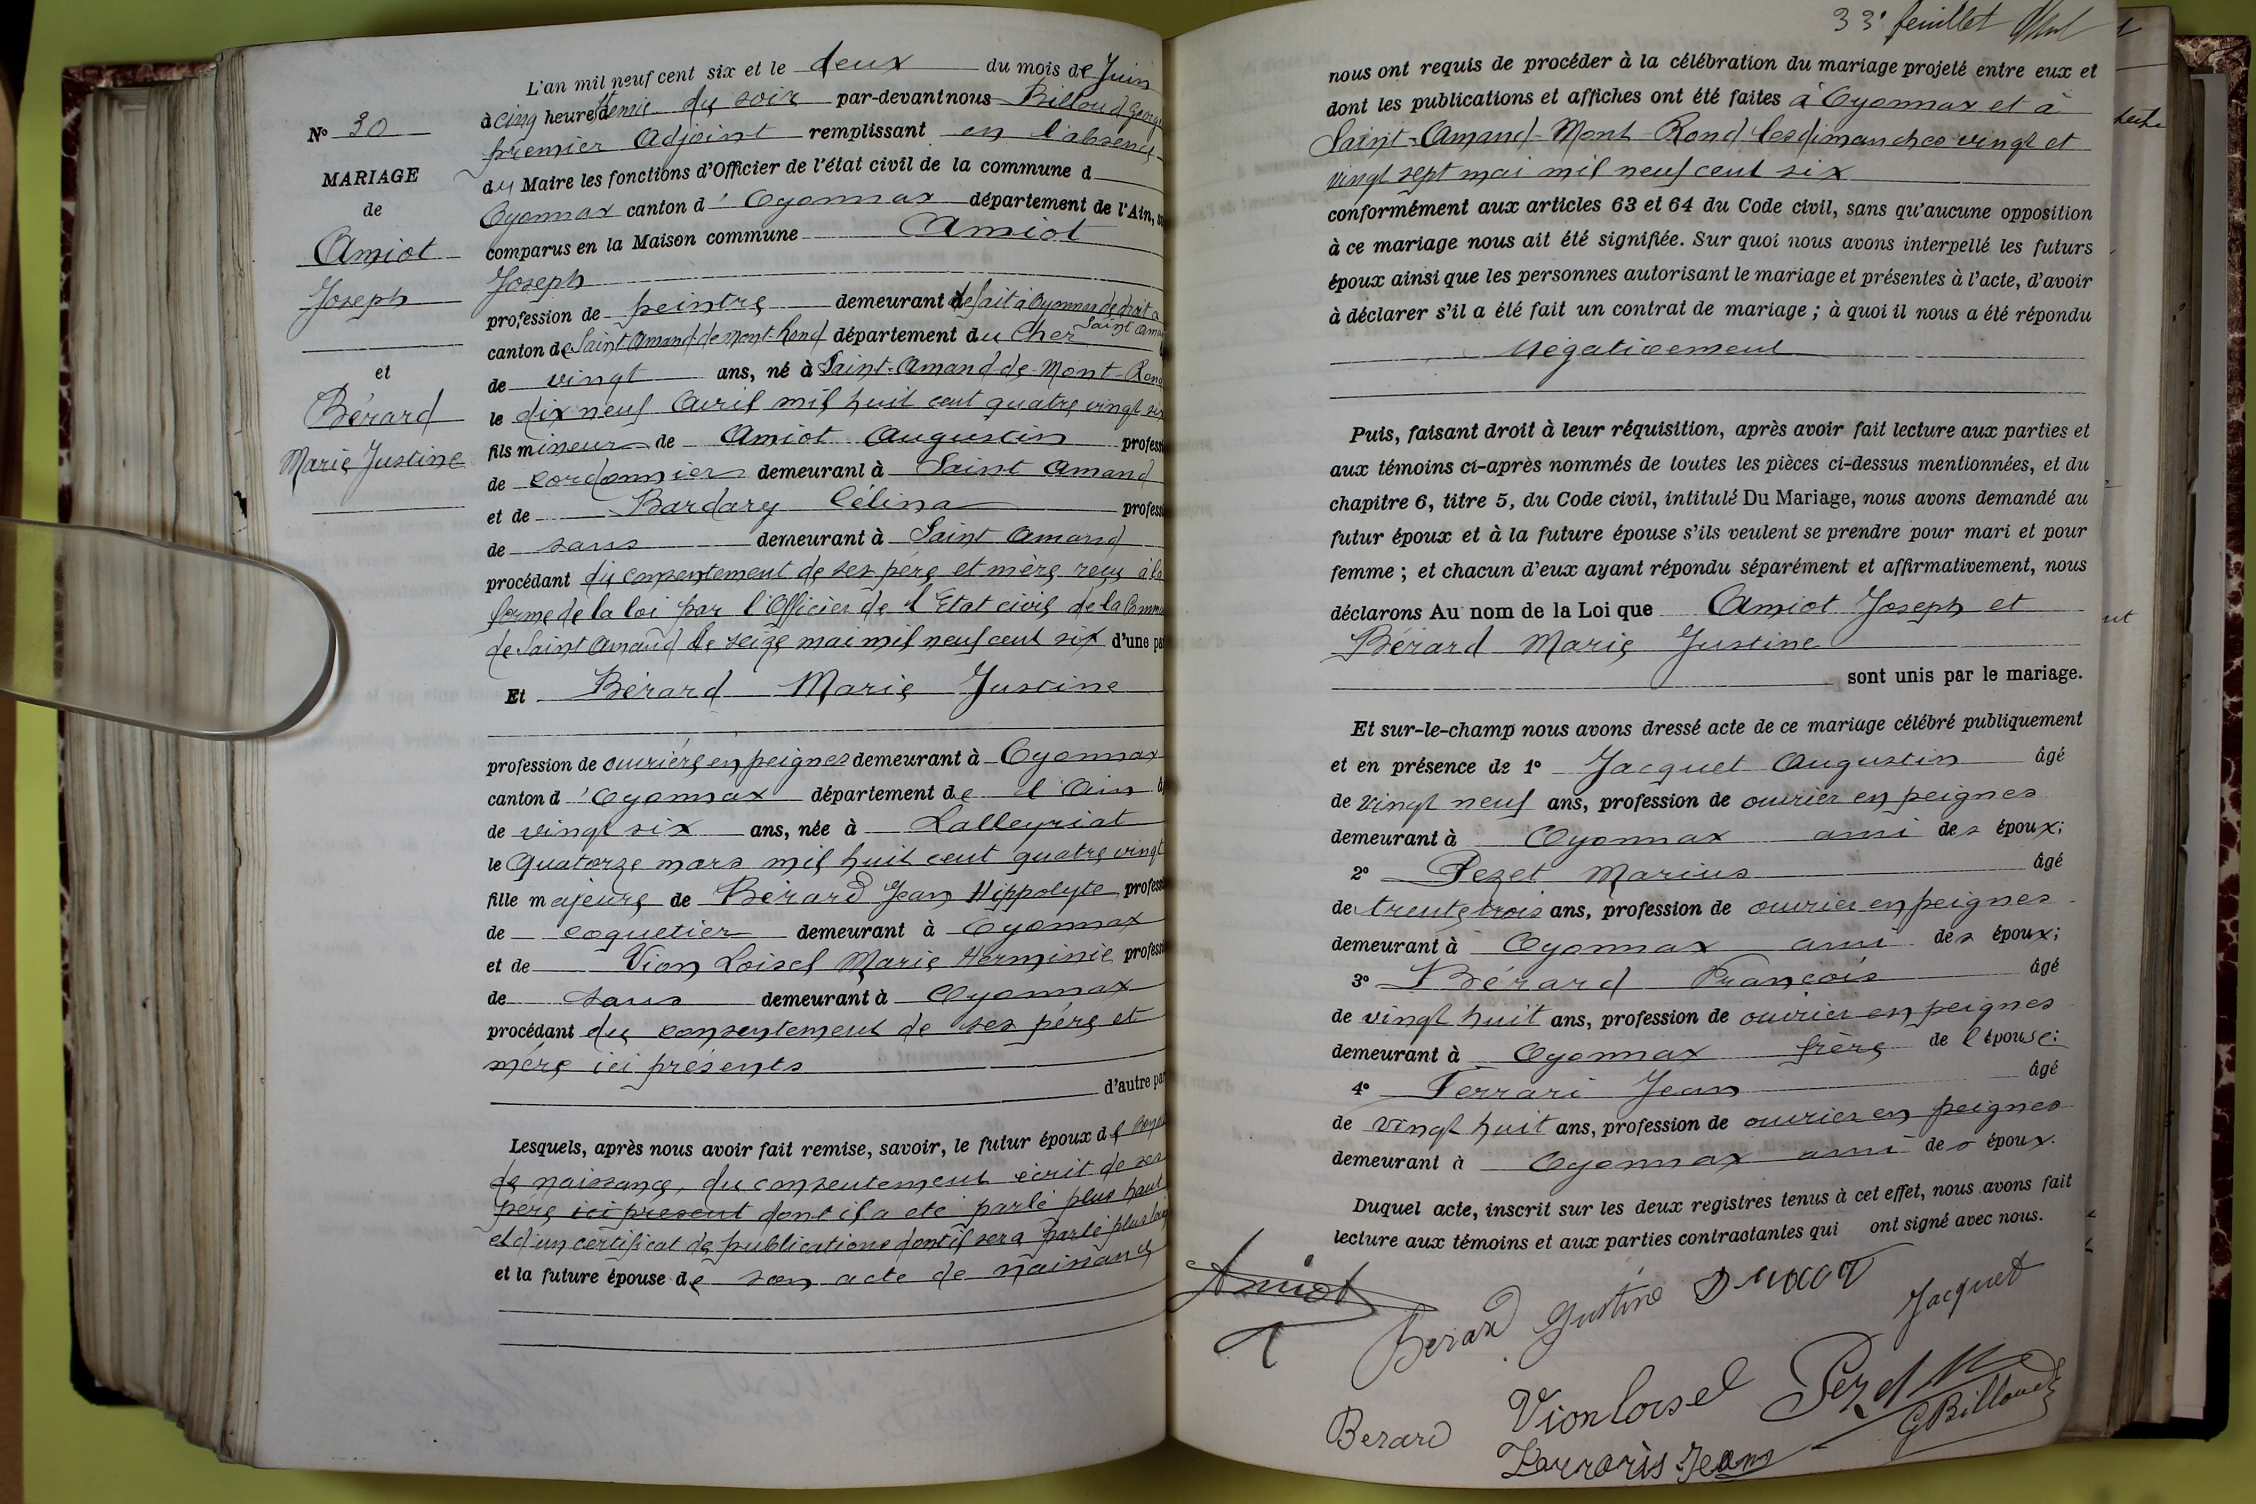 L'an mil neuf cent six et le deux du mois de Juin
à cinq heures demie du soir par-devant nous Billoud George
premier Adjoint remplissant en l'absence
du Maire les fonctions d'Officier de l'état civil de la commune d
Oyonnax canton d'Oyonnax département de l'Ain,
comparus en la Maison commune Amiot
Joseph
profession de peintre demeurant de fait à Oyonnax de droit à
Saint Amand
canton de Saint Amand de Mont-Rond département du Cher
de vingt ans, né à Saint-Amand de-Mont-Rond
le dix neuf Avril mil huit cent quatre vingt six
fils mineur de Amiot Augustin professi
de cordonnier demeurant à Saint Amand
et de Bardary Célina professi
de sans demeurant à Saint Amand
procédant du consentement de ses père et mère reçu à la
forme de la loi par l'Officier de l'Etat civil de la Commune
de Saint Amand le seize mai mil neuf cent six d'une par
Et Bérard Marie Justine
profession de ouvrière en peignes demeurant à Oyonnax
canton d'Oyonnax département de l'Ain
de vingt six ans, née à Lalleyriat
le quatorze mars mil huit cent quatre vingt
fille majeure de Bérard Jean Hippolyte professi
de coquetier demeurant à Oyonnax
et de Vion Loisel Marie Herminie professi
de sans demeurant à Oyonnax
procédant du consentement de ses père et
mère ici présents
d'autre par
Lesquels, après nous avoir fait remise, savoir, le futur époux de
de naissance, du consentement écrit de ses
père ici présent dont il a été parlé plus haut
et d'un certificat de publications dont il sera parlé plus loin
et la future épouse de son acte de naissance
N° 30
MARIAGE
de
Amiot
Joseph
et
Bérard
Marie Justine
33e feuillet
nous ont requis de procéder à la célébration du mariage projeté entre eux et
dont les publications et affiches ont été faites à Oyonnax et à
Saint-Amand-Mont-Rond les dimanches vingt et
vingt sept mai mil neuf cent six
conformément aux articles 63 et 64 du Code civil, sans qu'aucune opposition
à ce mariage nous ait été signifiée. Sur quoi nous avons interpellé les futurs
époux ainsi que les personnes autorisant le mariage et présentes à l'acte, d'avoir
à déclarer s'il a été fait un contrat de mariage ; à quoi il nous a été répondu
Négativement
Puis, faisant droit à leur réquisition, après avoir fait lecture aux parties et
aux témoins ci-après nommés de toutes les pièces ci-dessus mentionnées, et du
chapitre 6, titre 5, du Code civil, intitulé Du Mariage, nous avons demandé au
futur époux et à la future épouse s'ils veulent se prendre pour mari et pour
femme ; et chacun d'eux ayant répondu séparément et affirmativement, nous
déclarons Au nom de la Loi que Amiot Joseph et
Bérard Marie Justine
sont unis par le mariage.
Et sur-le-champ nous avons dressé acte de ce mariage célébré publiquement
et en présence de 1° Jacquet Augustin âgé
de vingt neuf ans, profession de ouvrier en peignes
demeurant à Oyonnax ami des époux;
2° Pezet Marius âgé
de trente trois ans, profession de ouvrier en peignes
demeurant à Oyonnax ami des époux;
3° Bérard François âgé
de vingt huit ans, profession de ouvrier en peignes
demeurant à Oyonnax frère de l'épouse;
4° Ferrari Jean âgé
de vingt huit ans, profession de ouvrier en peignes
demeurant à Oyonnax ami des époux.
Duquel acte, inscrit sur les deux registres tenus à cet effet, nous avons fait
lecture aux témoins et aux parties contractantes qui ont signé avec nous.
Amiot
Berard Justine
Jacquet
Berard
Vionloisel
Pezet M
GBilloud
Ferraris Jean